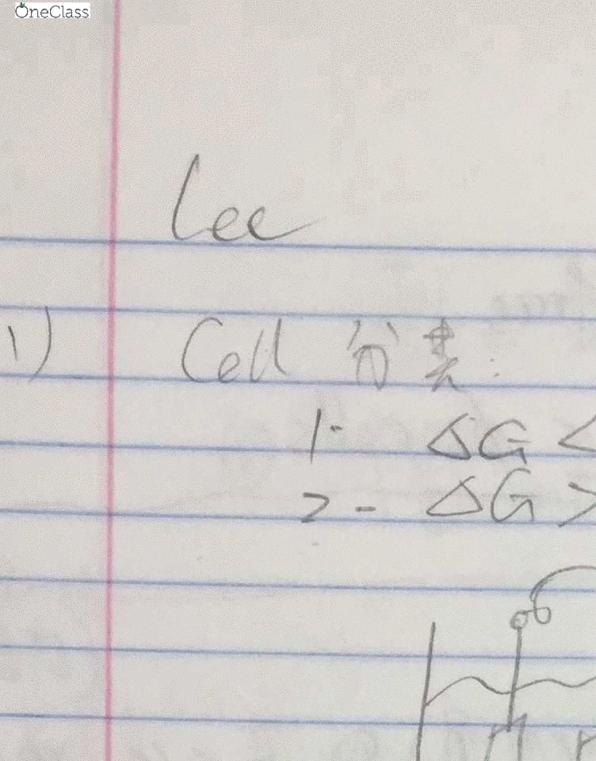 OneClass
Lec
1) Cell 分类:
1- ΔG <
2- ΔG >